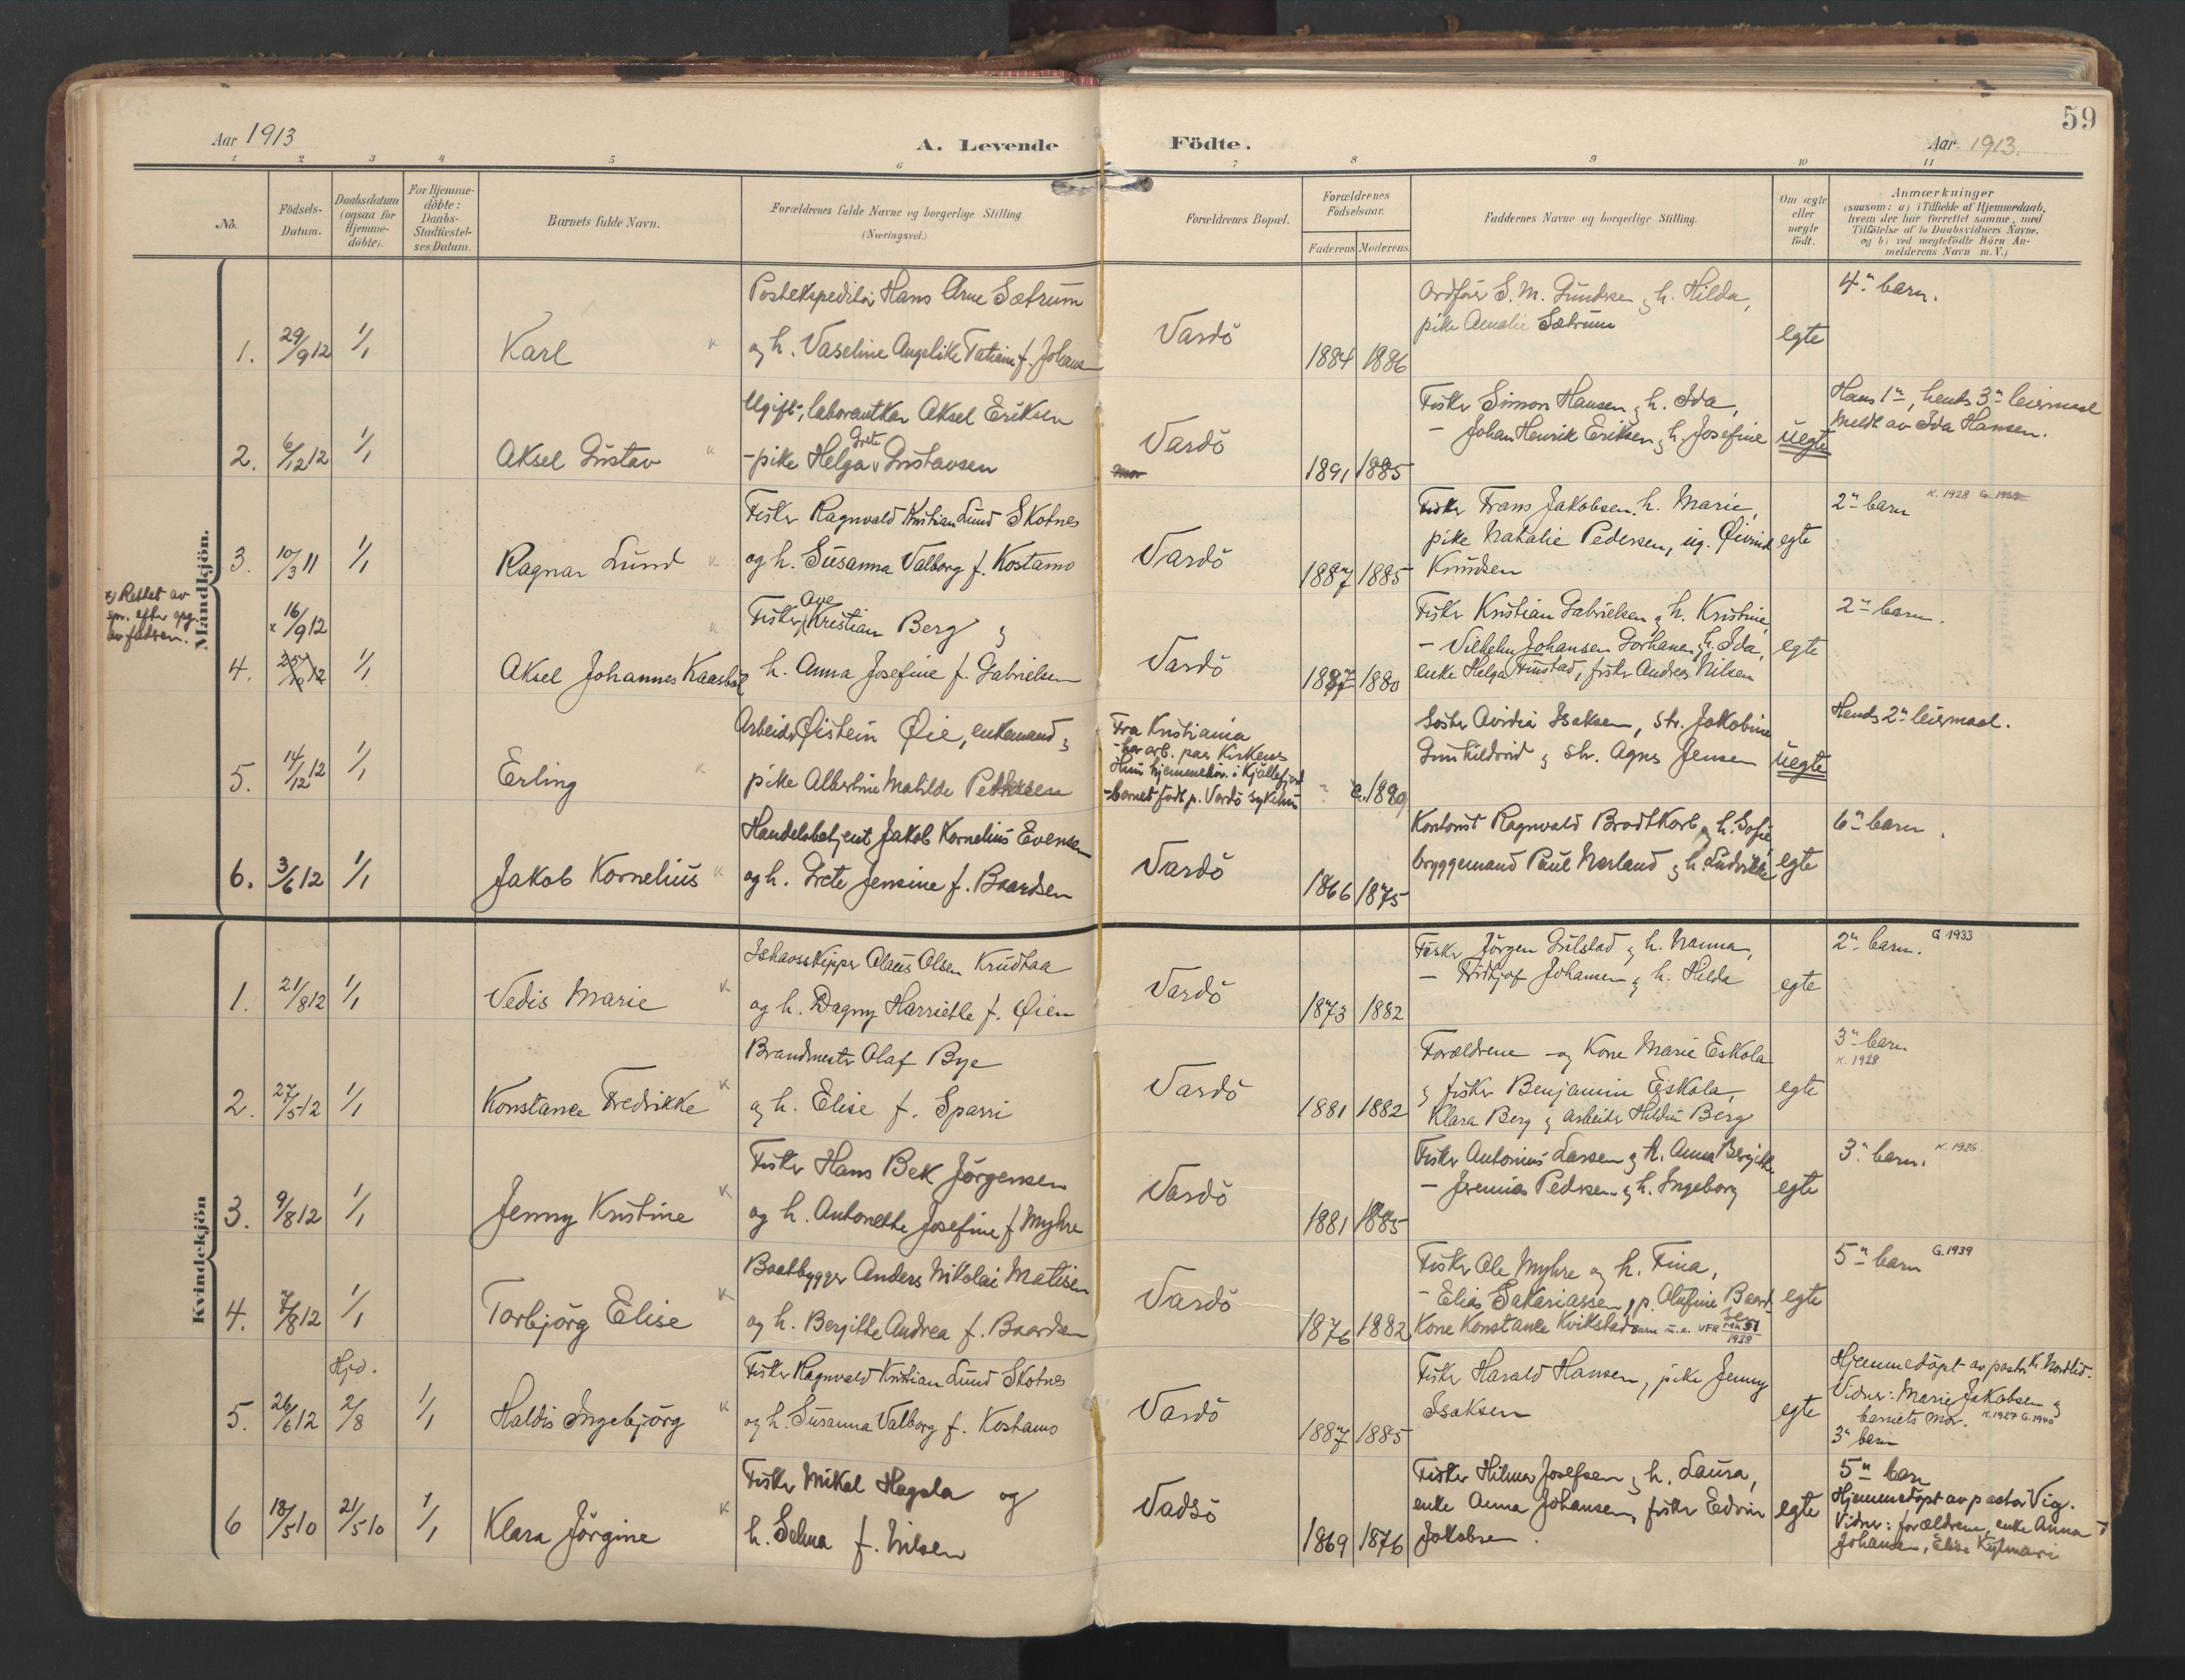 59
Aar 1913
A. Levende Födte.
Aar 1913.
1 2 3 4 5 6 7 8 9 10 11
No.
Födsels-Datum.
Daabsdatum (ogsaa for Hjemme-döbte).
For Hjemme-döbte: Daabs-Stadfæstel-ses Datum.
Barnets fulde Navn.
Forældrenes fulde Navne og borgerlige Stilling
(Næringsvei.)
Forældrenes Bopæl.
Forældrenes Födselsaar.
Faderens Moderens
Faddernes Navne og borgerlige Stilling.
Om ægte eller uægte födt.
Anmærkninger
(saasom: a) i Tilfælde af Hjemmedaab, hvem der har forrettet samme, med Tilföielse af to Daabsvidners Navne. og b) ved uægtefödte Börn An-melderens Navn m. V.)
Mandkjön.
1. 29/9 12 1/1 Karl
Postekspeditör Hans Arne Sætrum
og h. Vaseline Angelike Tatiana f. Johans
Vardö 1884 1886
Ordförer S. M. Gundersen og h. Hilda,
pike Amalie Sætrum
egte
4de barn.
2. 6/12 12 1/1 Aksel Gustav
Ugift, laborantkar Aksel Eriksen
- pike Helga Grete Gustavsen
Vardö 1891 1885
Fisker Simon Hansen og h. Ida,
- Johan Henrik Eriksen og h. Josefine
uegte
Hans 1ste, hends 3die leiermaal
Meldt av Ida Hansen.
3. 10/3 11 1/1 Ragnar Lund
Fisker Ragnvald Kristian Lund Skotnes
og h. Susanna Valborg f. Kostamo
Vardö 1887 1885
Fisker Frans Jakobsen. h. Marie,
pike Natalie Pedersen, ug. Øivind
Knudsen
egte
2det barn K. 1928
x) Rettet av
spr. efter opg.
av faderen.
4. x 16/9 12 25/10 12 1/1 Aksel Johannes Kaasböl
Fisker Ove Kristian Berg og
h. Anna Josefine f. Gabrielsen
Vardö 1887 1880
Fisker Kristian Gabrielsen og h. Kristine,
- Vilhelm Johansen Gorhanen og h. Ida,
enke Helga Finstad, fisker Andreas Nilsen
egte
2det barn.
5. 14/12 12 1/1 Erling
Arbeider Øistein Øie, enkemand og
pike Albertine Matilde Pettersen
Fra Kristiania
- har arb. paa Kirkenes
Hun hjemmehör. i Kjöllefjord
- barnet födt p. Vardö sykehus
? c. 1889
Söster Avidia Isaksen, str. Jakobine
Gunhildrud og str. Agnes Jensen
uegte
Hends 2det leiermaal.
6. 3/6 12 1/1 Jakob Kornelius
Handelsbetjent Jakob Kornelius Evensen
og h. Grete Jensine f. Baardsen
Vardö 1866 1875
Kontorist Ragnvald Brodtkorb og h. Sofie,
bryggemand Paul Norland og h. Ludvikke
egte
6te barn.
Kvindekjön
1. 21/8 12 1/1 Vedis Marie
Ishavsskipper Olaus Olsen Krudtaa
og h. Dagny Harriette f. Øien
Vardö 1873 1882
Fisker Jörgen Gulstad og h. Nanna,
- Fridtjof Johansen og h. Hilda
egte
2det barn. G 1933
2. 27/5 12 1/1 Konstance Fredrikke
Brandmester Olaf Bye
og h. Elise f. Sparri
Vardö 1881 1882
Forældrene - og kone Marie Eskola
og fisker Benjamin Eskola,
Klara Berg og arbeider Haldin Berg
egte
3die barn
K. 1928
3. 9/8 12 1/1 Jenny Kristine
Fisker Hans Bek Jörgensen
og h. Antonette Josefine f. Myhre
Vardö 1881 1885
Fisker Antonius Larsen og h. Anna Bergitte
- Jeremias Pedersen og h. Ingeborg
egte
3. barn. K. 1926.
4. 7/8 12 1/1 Torbjörg Elise
Baatbygger Anders Nikolai Matisen
og h. Bergitte Andrea f. Baardsen
Vardö 1876 1882
Fisker Ole Myhre og h. Fina,
- Elias Sakariassen, p. Olufine Baardsen
Kone Konstance Kvikstad
egte
5te barn G. 1939
5. 26/6 12 Hjd. 2/8 1/1 Haldis Ingebjörg
Fisker Ragnvald Kristian Lund Skotnes
og h. Susanna Valborg f. Kostamo
Vardö 1887 1885
Fisker Harald Hansen, pike Jenny
Isaksen
egte
Hjemmedöpt av pastor K. Nordlid.
Vidner: Marie Jakobsen og
barnets mor. K. 1927 G. 1940
3die barn
6 18/5 10 21/5 10 1/1 Klara Jörgine
Fisker Mikal Hagala og
h. Selma f. Nilsen
Vadsö 1869 1876
Fisker Hilmar Josefsen og h. Laura,
enke Anna Johansen, fisker Edvin
Jakobsen.
egte
5te barn
Hjemmedöpt av pastor Vig.
Vidner: forældrene, enke Anna
Johansen, Elise Kylmari